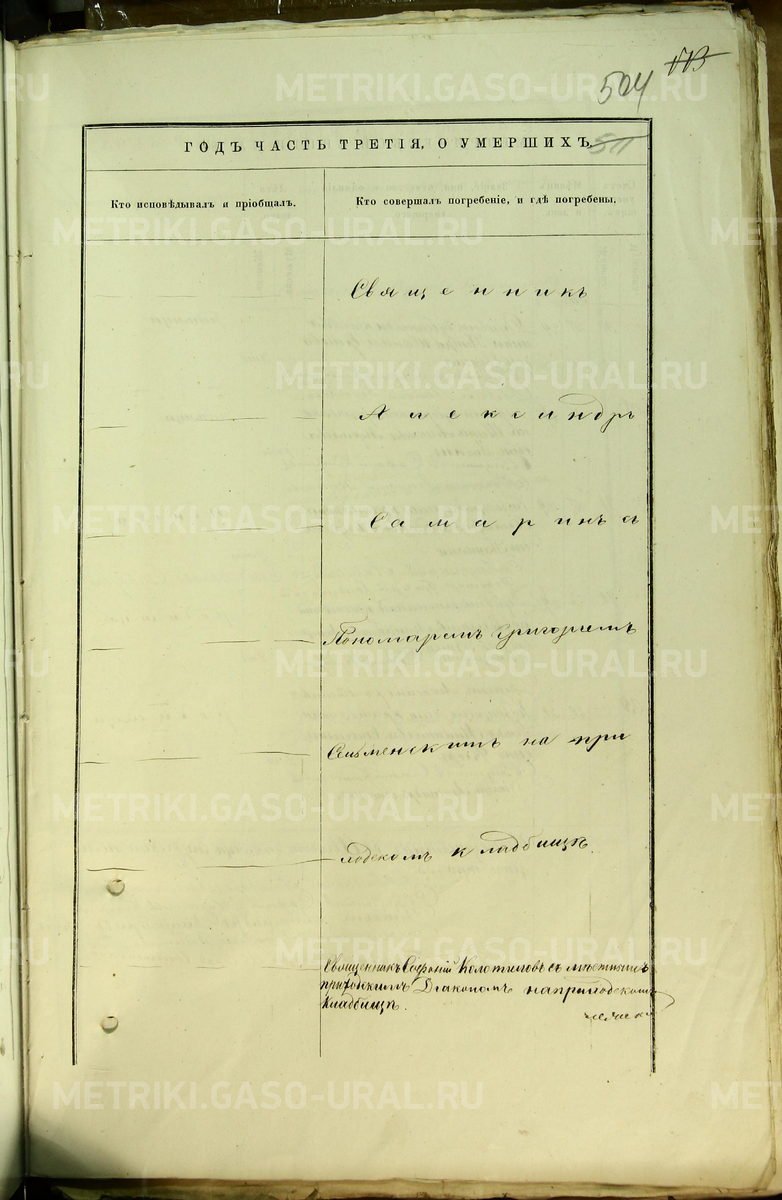 513
504
ГОДЪ ЧАСТЬ ТРЕТІЯ, О УМЕРШИХЪ.
511
Кто исповѣдывалъ и пріобщалъ.
Кто совершалъ погребеніе, и гдѣ погребены.
Священникъ
Александръ
Самаринъ съ
Пономаремъ Григоріемъ
на при
ходскомъ кладбищѣ.
Священникъ Софоній Колотиловъ съ мѣстнымъ
приходскимъ Діакономъ на приходскомъ
кладбищѣ.
METRIKI.GASO-URAL.RU